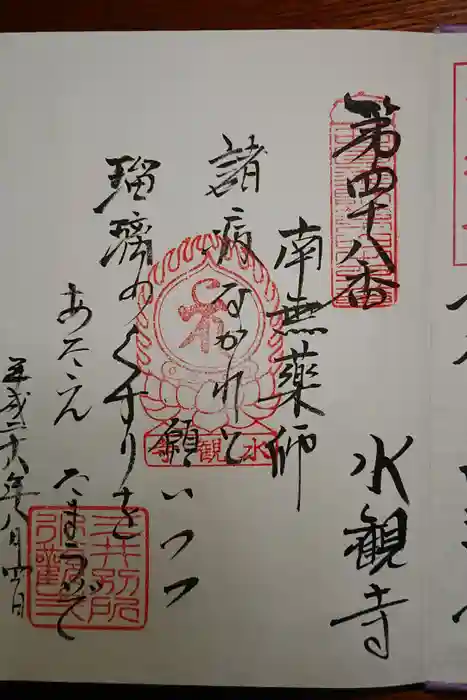 第四十八番
水観寺
南無薬師
諸病なかれと
願いつつ
瑠璃のくすりを
あたえ
たまうぞ
平成二十八年八月四日
水観寺
三井別所